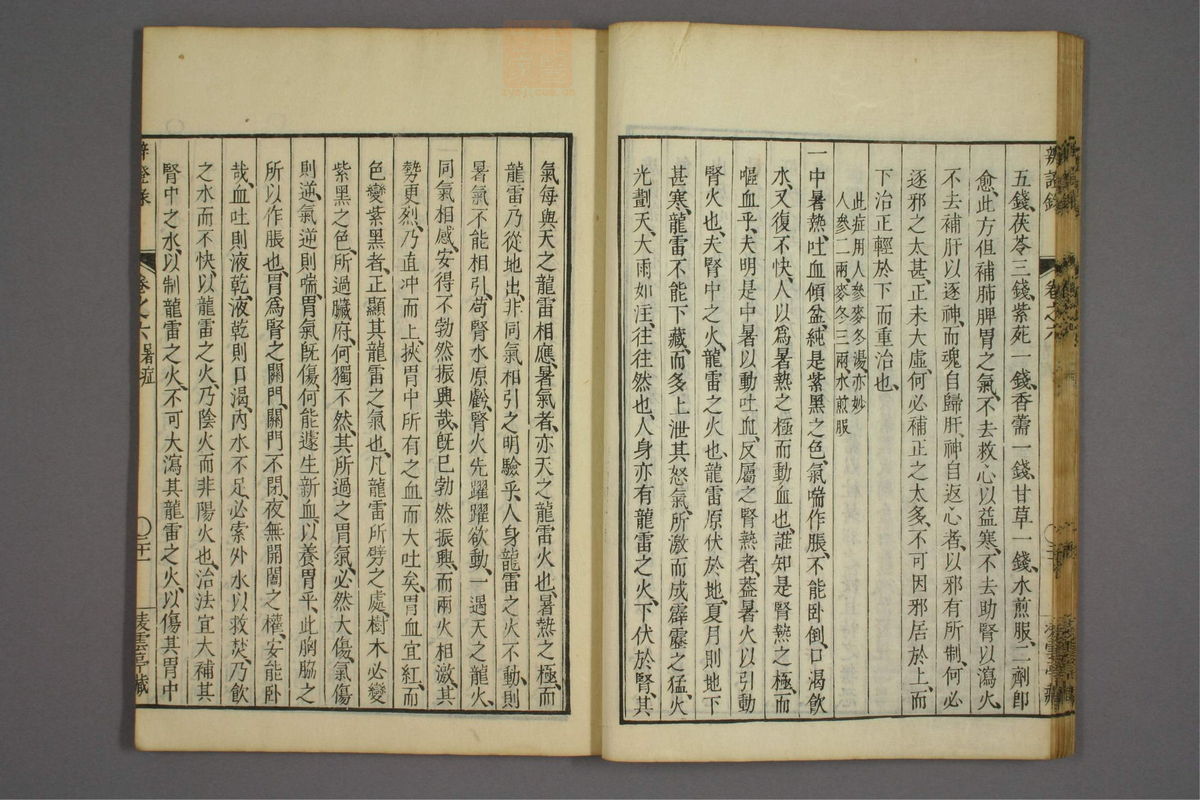 辨證錄 卷之六
五錢茯苓三錢紫死一錢香薷一錢甘草一錢水煎服二劑卽
愈、此方但補肺脾胃之氣、不去救心以益寒、不去助腎以瀉火、
不去補肝以逐神、而魂自歸肝、神自返心者、以邪有所制、何必
逐邪之太甚、正未大虛、何必補正之太多、不可因邪居於上、而
下治正輕於下而重治也、
此症用人參麥冬湯亦妙
人參二兩麥冬三兩、水煎服
一中暑熱、吐血傾盆、純是紫黑之色、氣喘作脹、不能卧倒、口渴飲
水、又復不快、人以爲暑熱之極而動血也、誰知是腎熱之極而
嘔血乎、夫明是中暑以動吐血、反屬之腎熱者、蓋暑火以引動
腎火也、夫腎中之火、龍雷之火也、龍雷原伏於地、夏月則地下
甚寒、龍雷不能下藏、而多上泄其怒氣、所激而成霹靂之猛、火
光劃天、大雨如注、往往然也、人身亦有龍雷之火下伏於腎、其
氣每與天之龍雷相應、暑氣者、亦天之龍雷火也、暑熱之極、而
龍雷乃從地出、非同氣相引之明驗乎、人身龍雷之火不動、則
暑氣不能相引、苟腎水原虧、腎火先躍躍欲動、一遇天之龍火、
同氣相感、安得不勃然振興哉、旣已勃然振興、而兩火相激、其
勢更烈、乃直冲而上、挾胃中所有之血而大吐矣、胃血宜紅、而
色變紫黑者、正顯其龍雷之氣也、凡龍雷所劈之處、樹木必變
紫黑之色、所過臟府、何獨不然、其所過之胃氣、必然大傷、氣傷
則逆、氣逆則喘、胃氣旣傷、何能遽生新血、以養胃乎、此胸脇之
所以作脹也、胃爲腎之關門、關門不閉、夜無開闔之權、安能卧
哉、血吐則液乾、液乾則口渴、內水不足、必索外水以救焚、乃飲
之水而不快、以龍雷之火、乃陰火而非陽火也、治法宜大補其
腎中之水、以制龍雷之火、不可大瀉其龍雷之火、以傷其胃中
辨證錄 卷之六 暑症 二十一 淩雲亭藏